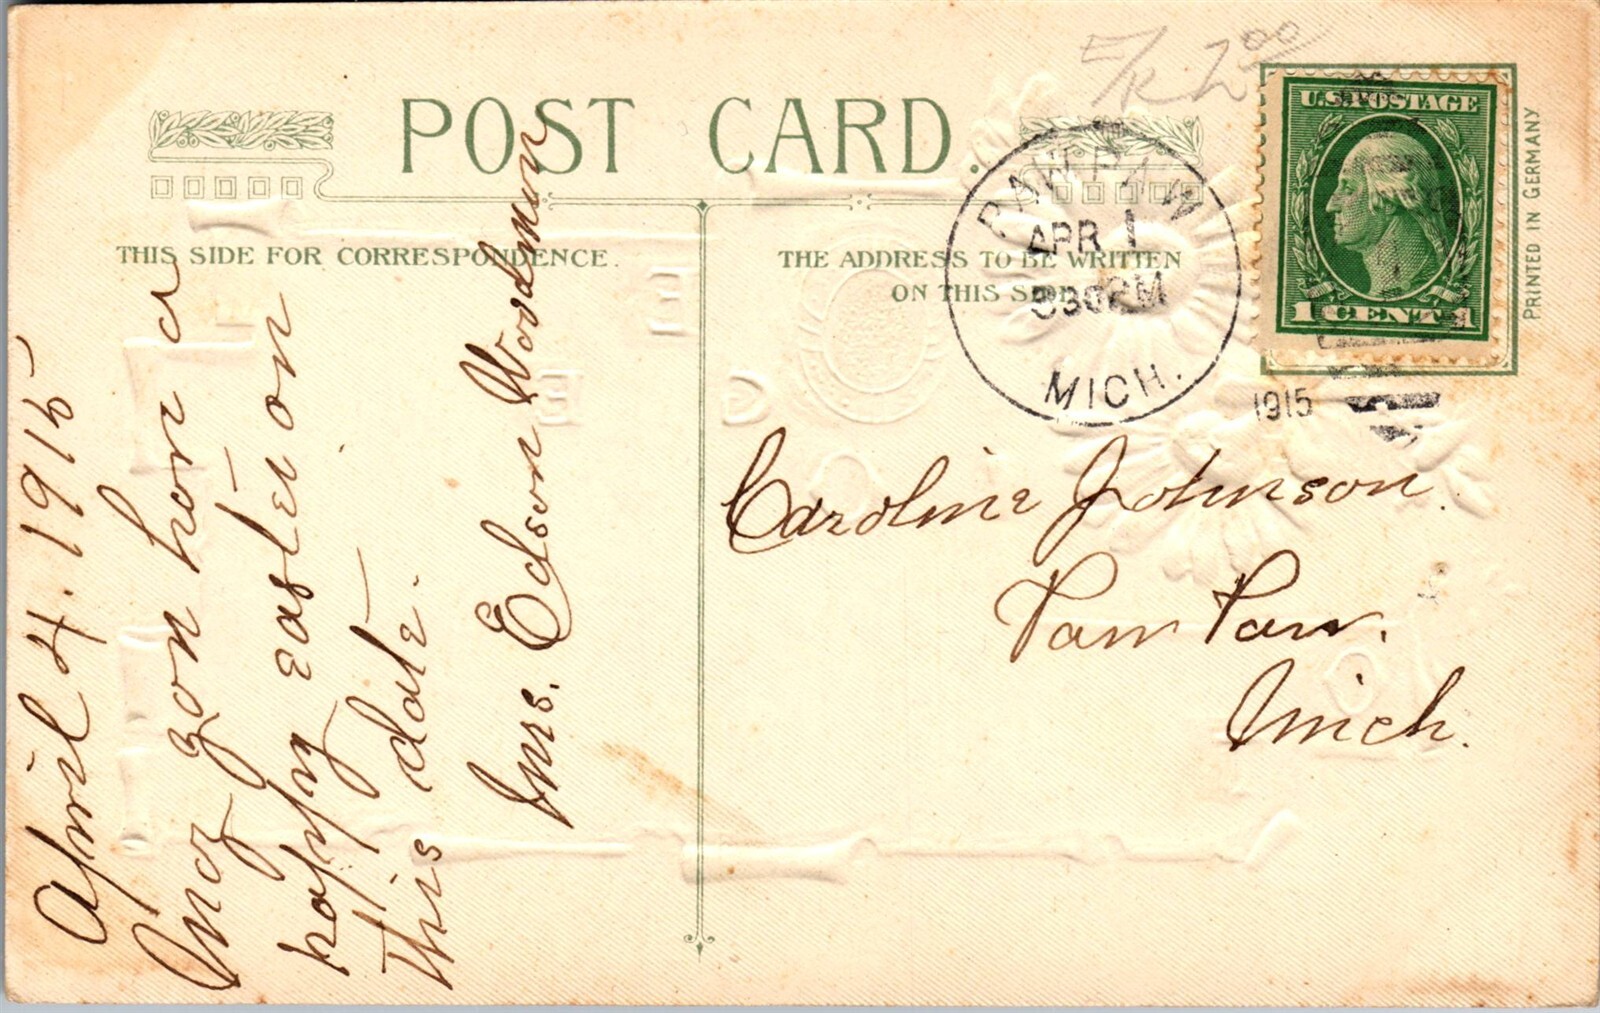 E/R 2.00
POST CARD.
THIS SIDE FOR CORRESPONDENCE.
THE ADDRESS TO BE WRITTEN
ON THIS SIDE
PAW PAW
APR 1
530 PM
MICH.
1915
U.S. POSTAGE
1 CENT 1
PRINTED IN GERMANY
April 4. 1915
May you have a
happy easter on
this date.
Mrs. Edson Woodman
Caroline Johnson.
Paw Paw.
Mich.